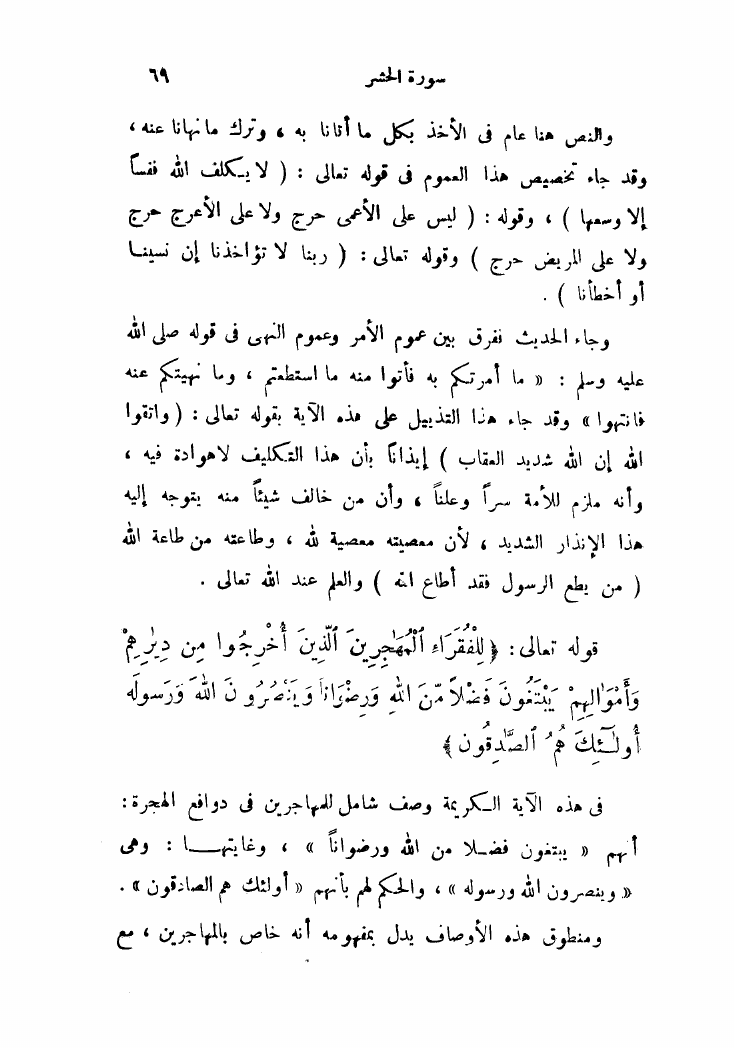 سورة الحشر ٦٩
والنص هنا عام فى الأخذ بكل ما أتانا به ، وترك ما نهانا عنه ،
وقد جاء تخصيص هذا العموم فى قوله تعالى : ( لا يكلف الله نفساً
إلا وسعها ) ، وقوله : ( ليس على الأعمى حرج ولا على الأعرج حرج
ولا على المريض حرج ) وقوله تعالى : ( ربنا لا تؤاخذنا إن نسينا
أو أخطأنا ) .
وجاء الحديث نفرق بين عموم الأمر وعموم النهى فى قوله صلى الله
عليه وسلم : « ما أمرتكم به فأتوا منه ما استطعتم ، وما نهيتكم عنه
فانتهوا » وقد جاء هذا التذييل على هذه الآية بقوله تعالى : ( واتقوا
الله إن الله شديد العقاب ) إيذاناً بأن هذا التكليف لاهوادة فيه ،
وأنه ملزم للأمة سراً وعلناً ، وأن من خالف شيئاً منه يتوجه إليه
هذا الإنذار الشديد ، لأن معصيته معصية لله ، وطاعته من طاعة الله
( من يطع الرسول فقد أطاع الله ) والعلم عند الله تعالى .
قوله تعالى : ﴿ لِلْفُقَرَاءِ ٱلْمُهَٰجِرِينَ ٱلَّذِينَ أُخْرِجُوا مِن دِيَٰرِهِمْ
وَأَمْوَٰلِهِمْ يَبْتَغُونَ فَضْلاً مِّنَ اللهِ وَرِضْوَٰناً وَيَنْصُرُونَ اللهَ وَرَسُولَهُ
أُولَٰئِكَ هُمُ ٱلصَّٰدِقُونَ ﴾
فى هذه الآية الكريمة وصف شامل للمهاجرين فى دوافع الهجرة :
أنهم « يبتغون فضلا من الله ورضواناً » ، وغايتها : وهى
« وينصرون الله ورسوله » ، والحكم لهم بأنهم « أولئك هم الصادقون » .
ومنطوق هذه الأوصاف يدل بمفهومه أنه خاص بالمهاجرين ، مع